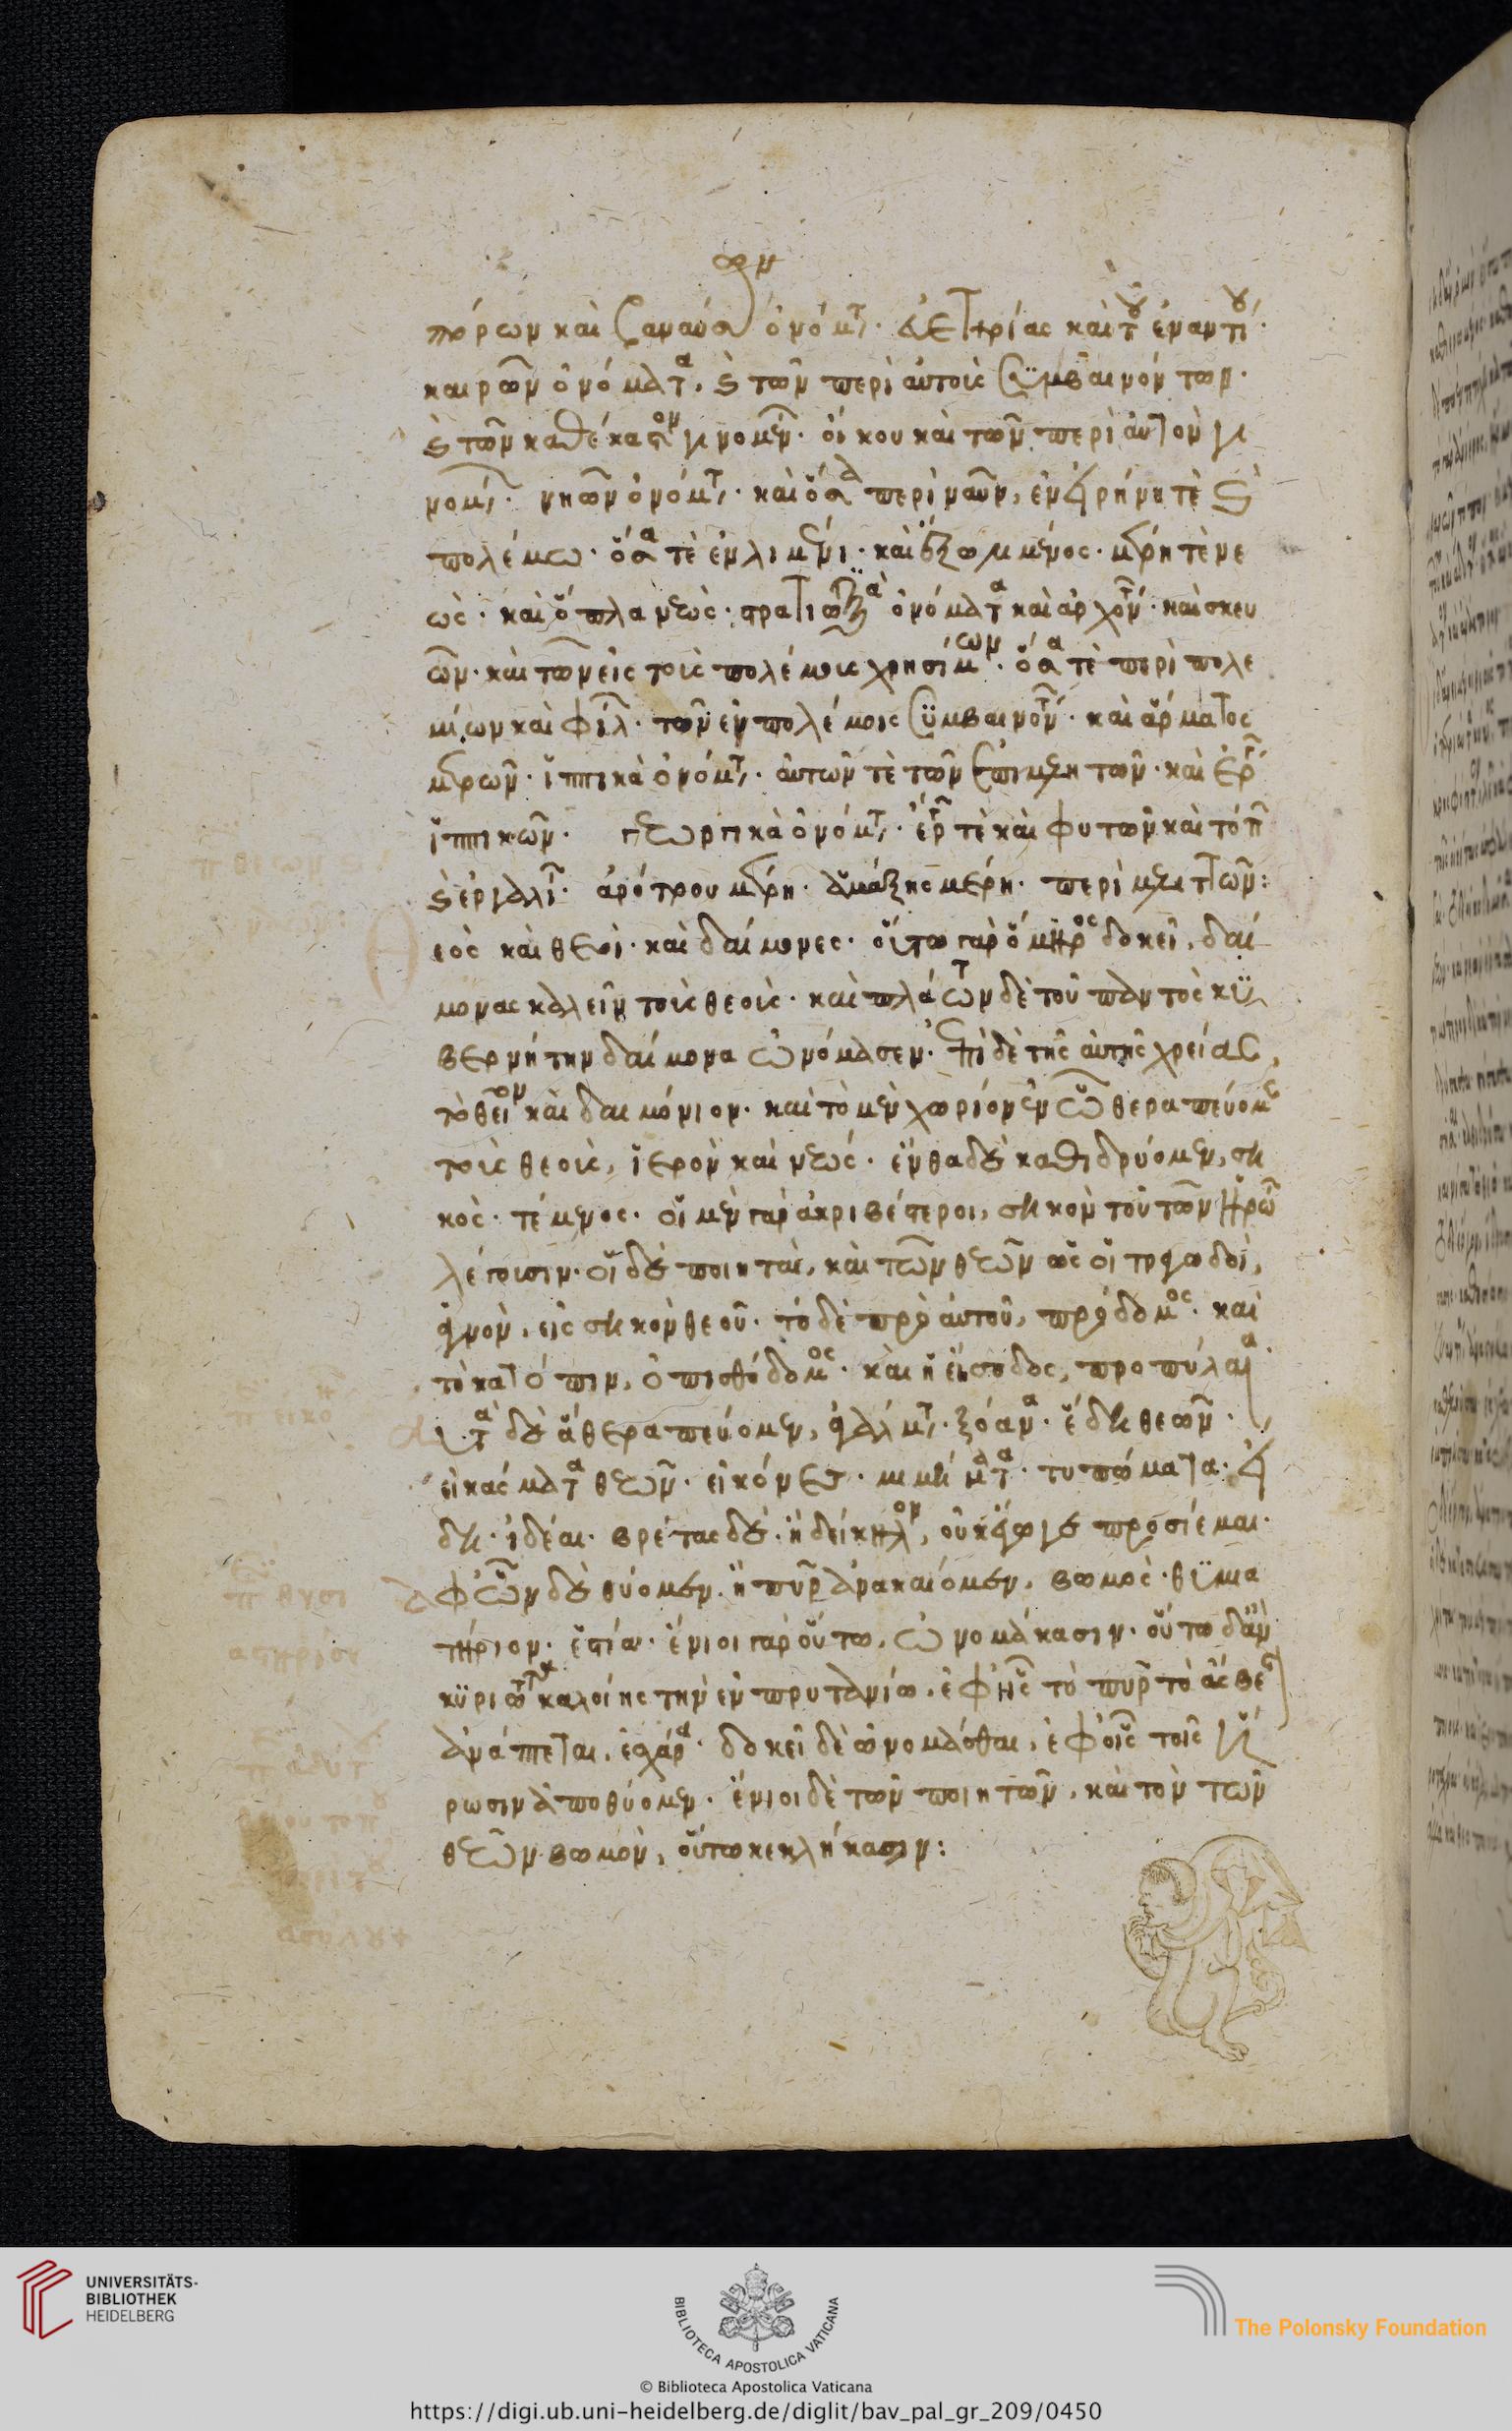 πόρων καὶ βαναύσων ὀνόματα· εὐετηρίας καὶ τοῦ ἐναντίου·
καιρῶν ὀνόματα, καὶ τῶν περὶ αὐτοὺς συμβαινόντων·
καὶ τῶν καθέκαστον γινομένων· οἴκου καὶ τῶν περὶ αὐτὸν γι
νομένων· νηῶν ὀνόματα· καὶ ὅσα περὶ ναῦν, ἐν εἰρήνη τὲ καὶ
πολέμω· ὅσα τὲ ἐν λιμένι· μέρη τὲ νε
ὼς· καὶ ὅπλα νεὼς· ὀνόματα καὶ ἀρχόντων· καὶ σκευ
ῶν· καὶ τῶν εἰς τοὺς πολέμους χρησίμων· ὅσα τὲ περὶ πολε
μίων καὶ φίλων· τῶν ἐν πολέμοις συμβαινόντων· καὶ ἅρματος
μερῶν· ἱππικὰ ὀνόματα· αὐτῶν τὲ τῶν καὶ ἔργων
ἱππικῶν· γεωργικὰ ὀνόματα· ἔργων τὲ καὶ φυτῶν καὶ τόπων
καὶ ἐργαλείων· ἀρότρου μέρη· ἁμάξης μέρη· περὶ μελιττῶν:
εὸς καὶ θεοὶ· καὶ δαίμονες· οὕτω γὰρ ὅμηρος δοκεῖ, δαί
μονας καλεῖν τοὺς θεοὺς· καὶ πλάτων δὲ τοῦ παντὸς κυ
βερνήτην δαίμονα ὠνόμασεν· ἐπὶ δὲ τῆς αὐτῆς χρείας,
τὸ θεῖον καὶ δαιμόνιον· καὶ τὸ μὲν χωρίον ἐν ὧ θεραπεύομεν
τοὺς θεοὺς, ἱερὸν καὶ νεώς· ἔνθα δὲ καθιδρύομεν, ση
κὸς· τέμενος· οἱ μὲν γὰρ ἀκριβέστεροι, σηκὸν τοῦ τῶν ἡρώων
λέγουσιν· οἱ δὲ ποιηταὶ, καὶ τῶν θεῶν ὡς οἱ τραγωδοὶ,
ἁγνὸν, εἰς σηκὸν θεοῦ· τὸ δὲ πρὸ αὐτοῦ, πρόδομος· καὶ
τὸ κατόπιν, ὀπισθόδομος· καὶ ἡ εἴσοδος, προπύλαια·
τὰ δὲ ἃ θεραπεύομεν, ἀγάλματα· ξόανα· ἕδη θεῶν·
εἰκάσματα θεῶν· εἰκόνες· μιμήματα· τυπώματα· εἴ
δη· ἰδέαι· βρέτας δὲ· ἢ δείκηλον, οὐκ ἔγωγε προσίεμαι·
ἐφ' ὧν δὲ θύομεν ἢ πῦρ ἀνακαίομεν, βωμὸς· θυμια
τήριον· ἑστία· ἔνιοι γὰρ οὕτω, ὠνομάκασιν· οὕτω δ' ἂν
κυριώτατα καλοίης τὴν ἐν πρυτανίω· ἐφ' ἧς τὸ πῦρ τὸ ἄσβεστον
ἀνάπτεται, ἐσχάρα· δοκεῖ δὲ ὠνομάσθαι, ἐφ' οἷς τοῖς ἥ
ρωσιν ἀποθύομεν· ἔνιοι δὲ τῶν ποιητῶν, καὶ τὸν τῶν
θεῶν βωμὸν, οὕτω κεκλήκασιν:
UNIVERSITÄTS-
BIBLIOTHEK
HEIDELBERG
BIBLIOTECA APOSTOLICA VATICANA
The Polonsky Foundation
© Biblioteca Apostolica Vaticana
https://digi.ub.uni-heidelberg.de/diglit/bav_pal_gr_209/0450